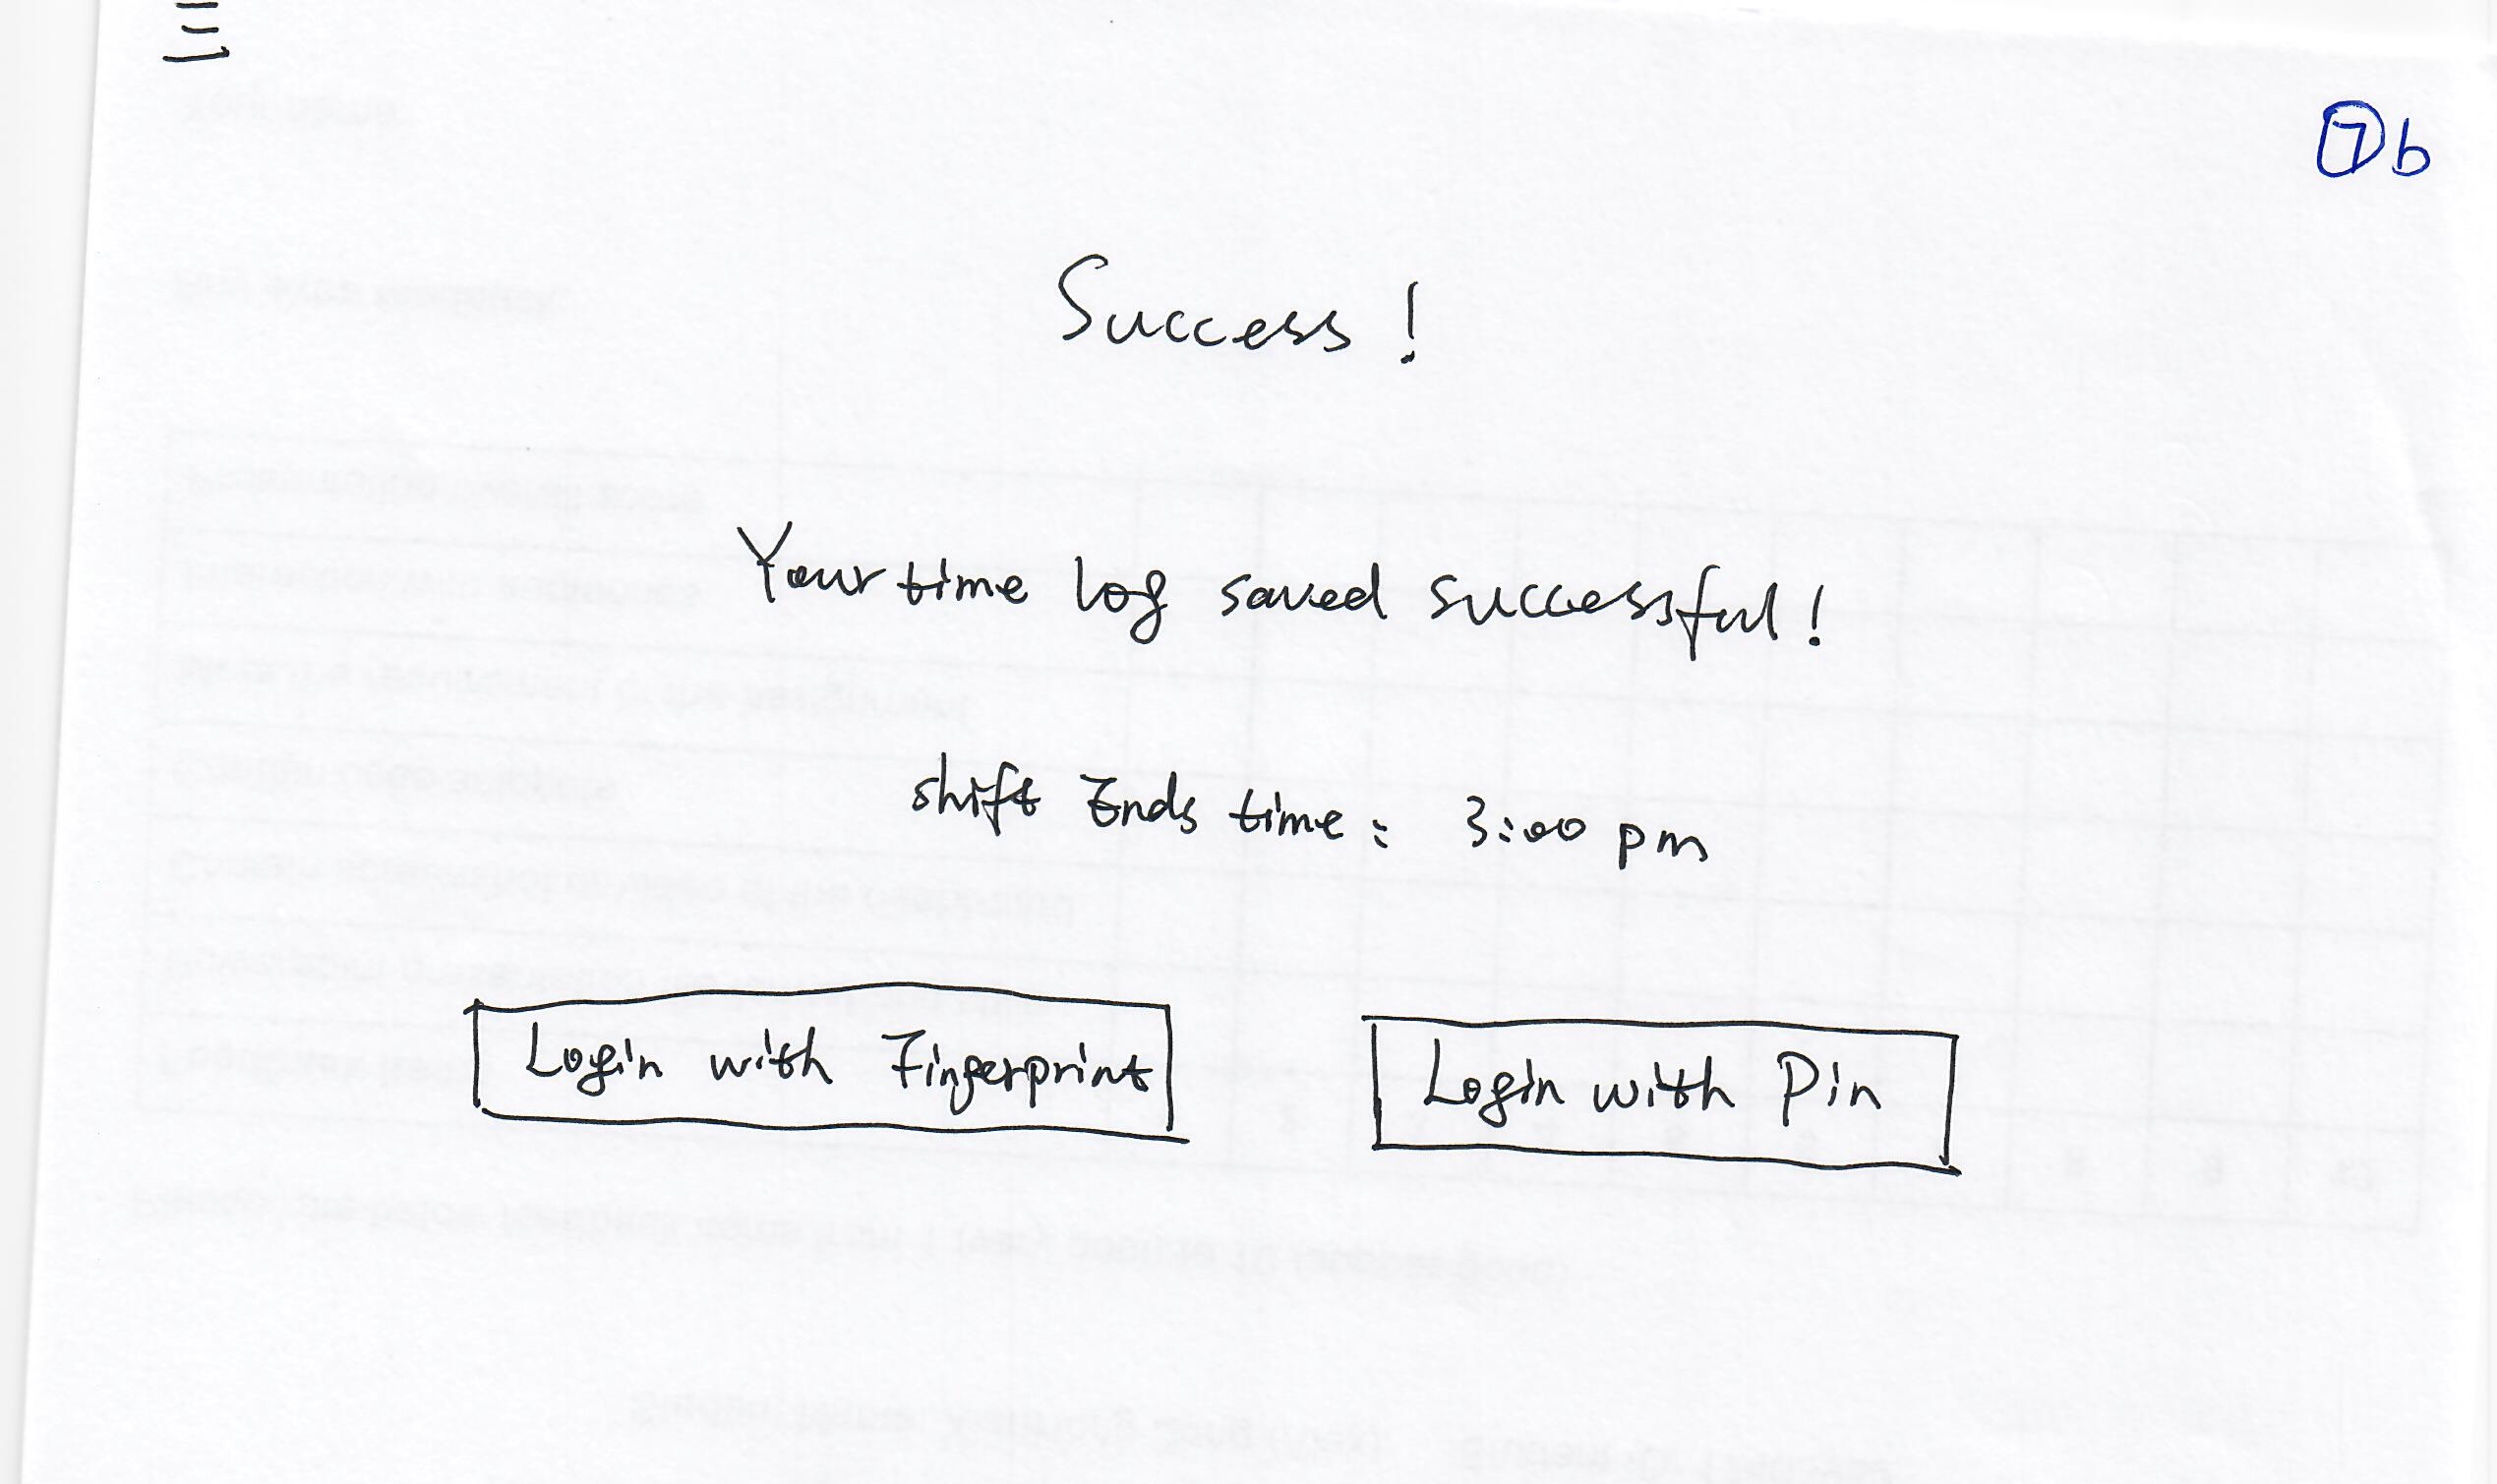 7b
Success!
Your time log saved successful!
shift Ends time: 3:00 pm
Login with Fingerprint
Login with Pin